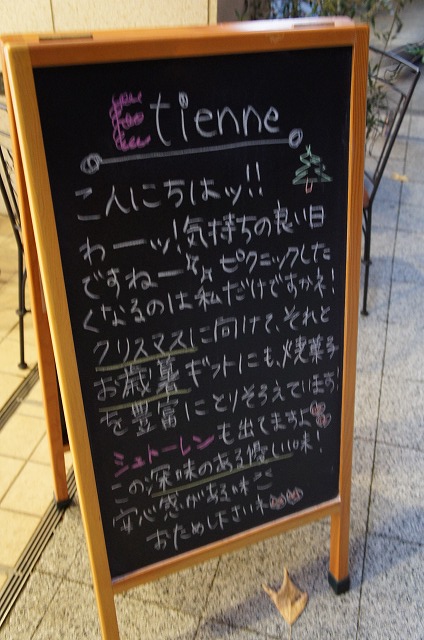 Etienne
こんにちはッ!!
わーッ!気持ちの良い日
ですねー ピクニックした
くなるのは私だけですかネ!
クリスマスに向けて、それと
お歳暮ギフトにも、焼菓子
を豊富にとりそろえています!
シュトーレンも出てますよ
この深味のある優しい味!
安心感がある味
おためし下さいネ